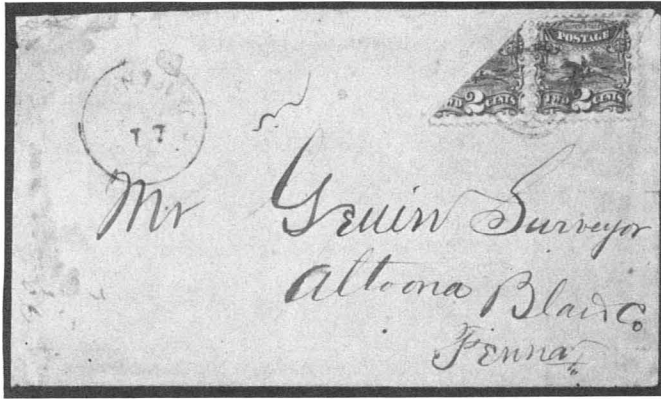 POSTAGE
2 CENTS 2 CENTS
Mr Surveyor
Altoona Blair Co
Penna